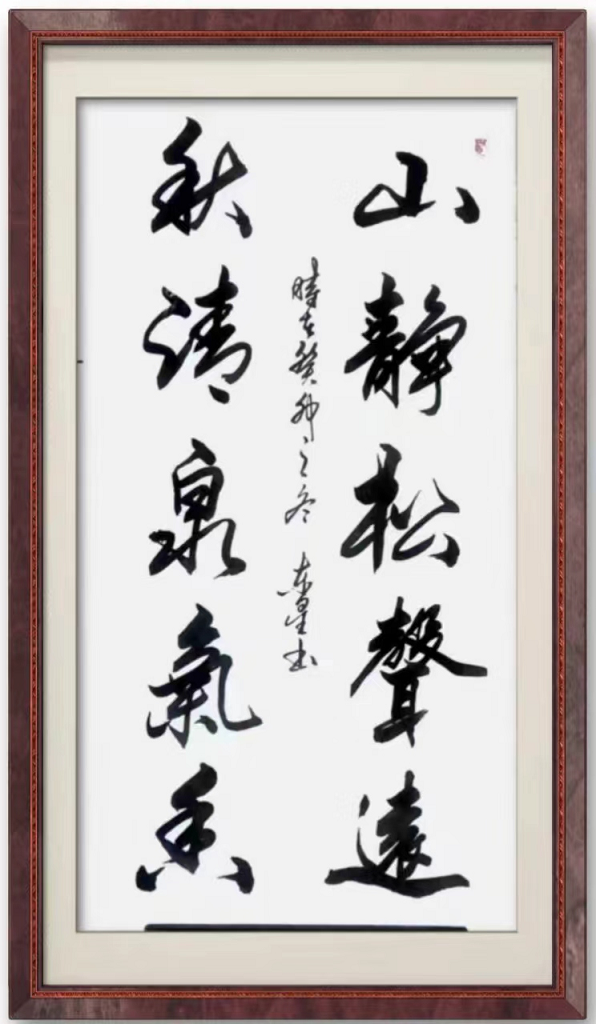 山靜松聲遠
秋清泉氣香
時在癸卯之冬 東星书